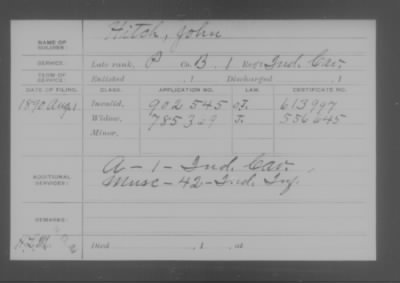 NAME OF SOLDIER: Hitch, John
SERVICE: Late rank, P Co. B, 1 Reg't Ind. Cav.
TERM OF SERVICE: Enlisted , 1 Discharged , 1
DATE OF FILING. CLASS. APPLICATION NO. LAW. CERTIFICATE NO.
1890 Aug 1 Invalid, 902545 O.J. 613997
Widow, 785329 J. 556645
Minor,
ADDITIONAL SERVICES: A - 1 - Ind. Cav.
Musc - 42 - Ind. Inf.
REMARKS:
Died , 1 , at